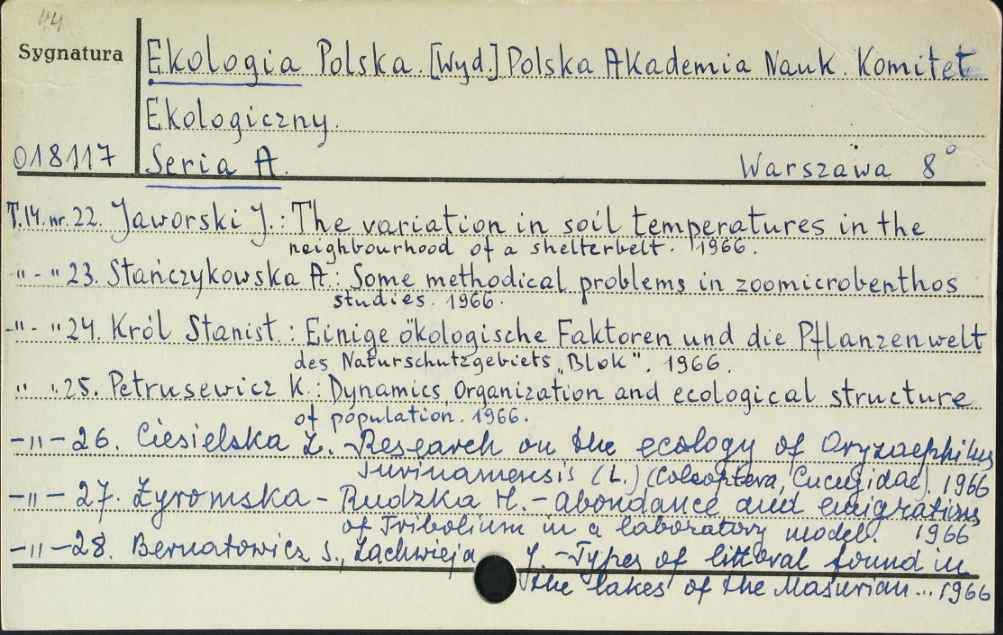 44
Sygnatura
Ekologia Polska. [Wyd.] Polska Akademia Nauk. Komitet
Ekologiczny.
018117 Seria A. Warszawa 8°
T.14. nr. 22. Jaworski J.: The variation in soil temperatures in the
neighbourhood of a shelterbelt. 1966.
-"-" 23. Stańczykowska A.: Some methodical problems in zoomicrobenthos
studies. 1966.
-"-" 24. Król Stanist.: Einige ökologische Faktoren und die Pflanzenwelt
des Naturschutzgebiets „Blok". 1966.
" " 25. Petrusewicz K.: Dynamics Organization and ecological structure
of population. 1966.
-"- 26. Ciesielska Z. - Research on the ecology of Oryzaephilus
surinamensis (L.) (Coleoptera, Cucujidae). 1966
-"- 27. Żyromska - Rudzka H. - abondance and emigrations
of Tribolium in a laboratory model. 1966
-"- 28. Bernatowicz S., Zachwieja J. - Types of littoral found in
the lakes of the Masurian ... 1966